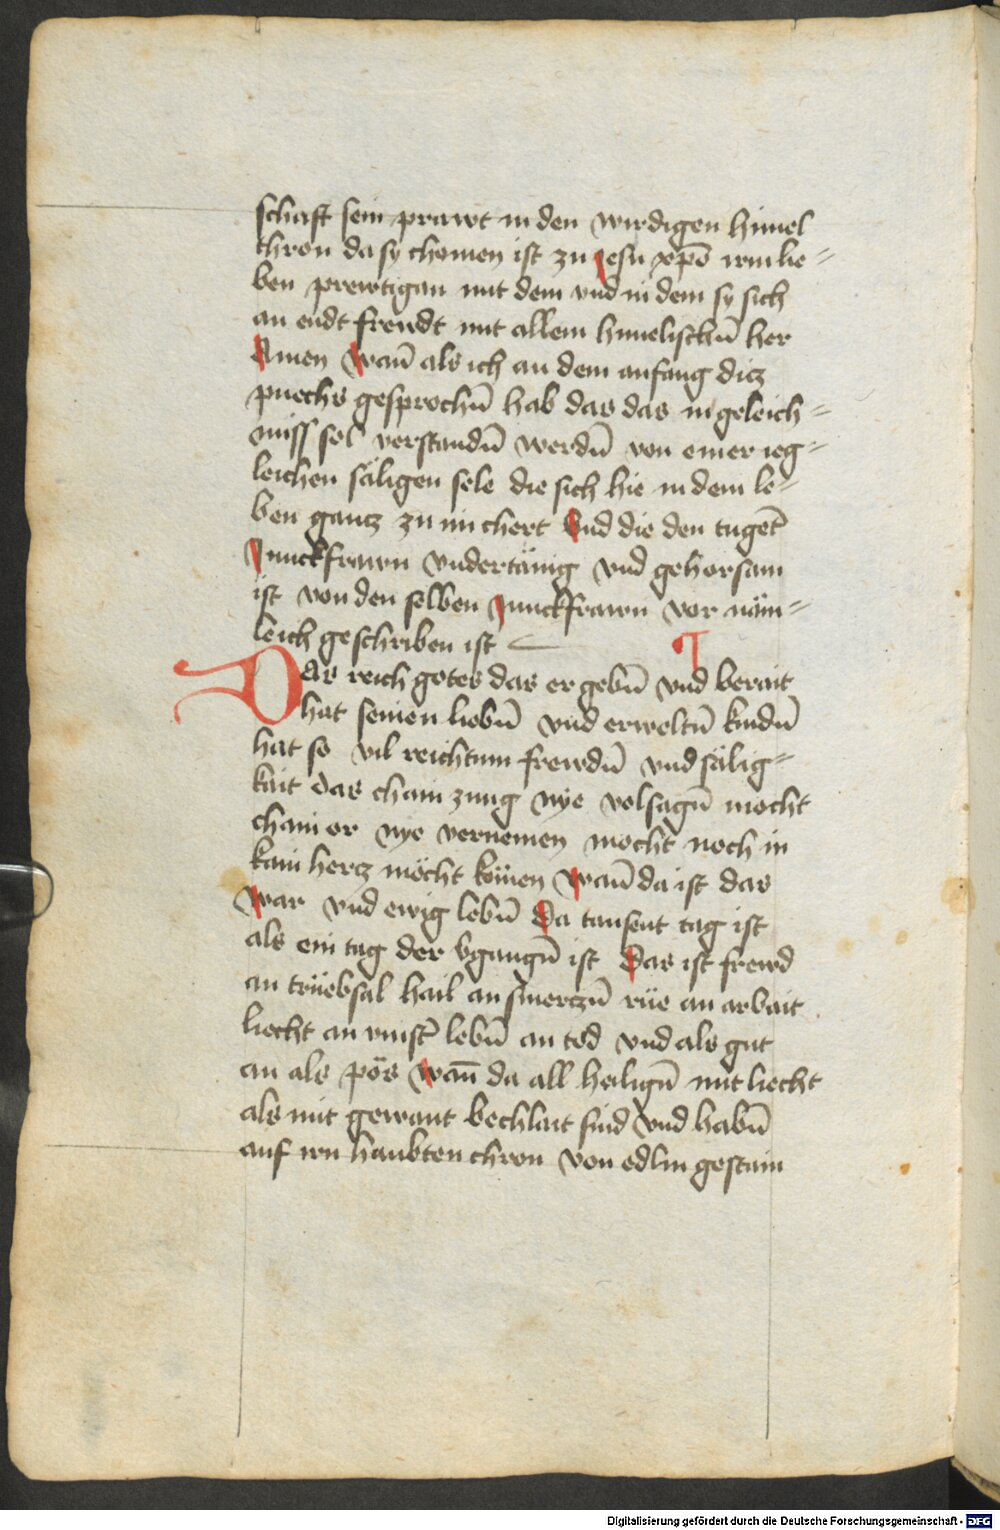 schaft sein prawt in den wirdigen himel
thron da sy chomen ist zu Jesu xp̄o irm lie⸗
ben prewtigan mit dem vnd in dem sy sich
an endt frewdt mit allem himelischn̄ her
Amen Wan̄ als ich an dem anfang ditz
puechs gesprochn̄ hab das das in geleich⸗
niss sol verstandn̄ werdn̄ von einer ieg⸗
leichen säligen sele die sich hie in dem le⸗
ben gantz zu im chert Vnd die den tugēt
Junckfrawn vndertänig vnd gehorsam
ist von den selben Junckfrawn vor näm⸗
leich geschriben ist
Das reich gotes das er gebn̄ vnd berait
hat seinen liebn̄ vnd erweltn̄ kindn̄
hat so vil reichtum frewdn̄ vnd sälig⸗
kait das chain zung nye volsagn̄ mocht
chain or nye vernemen mocht noch in
kain hertz möcht kömen Wan̄ da ist das
War vnd ewig lebn̄ Da tausent tag ist
als ein tag der vgangn̄ ist Das ist frewd
an trüebsal hail an smerczn̄ rüe an arbait
liecht an vinst̄ lebn̄ an tod vnd als gut
an als pös Wan̄ da all heilign̄ mit liecht
als mit gewant bechlait sind vnd habn̄
auf irn haubten chron von edlm gestain
Digitalisierung gefördert durch die Deutsche Forschungsgemeinschaft - DFG